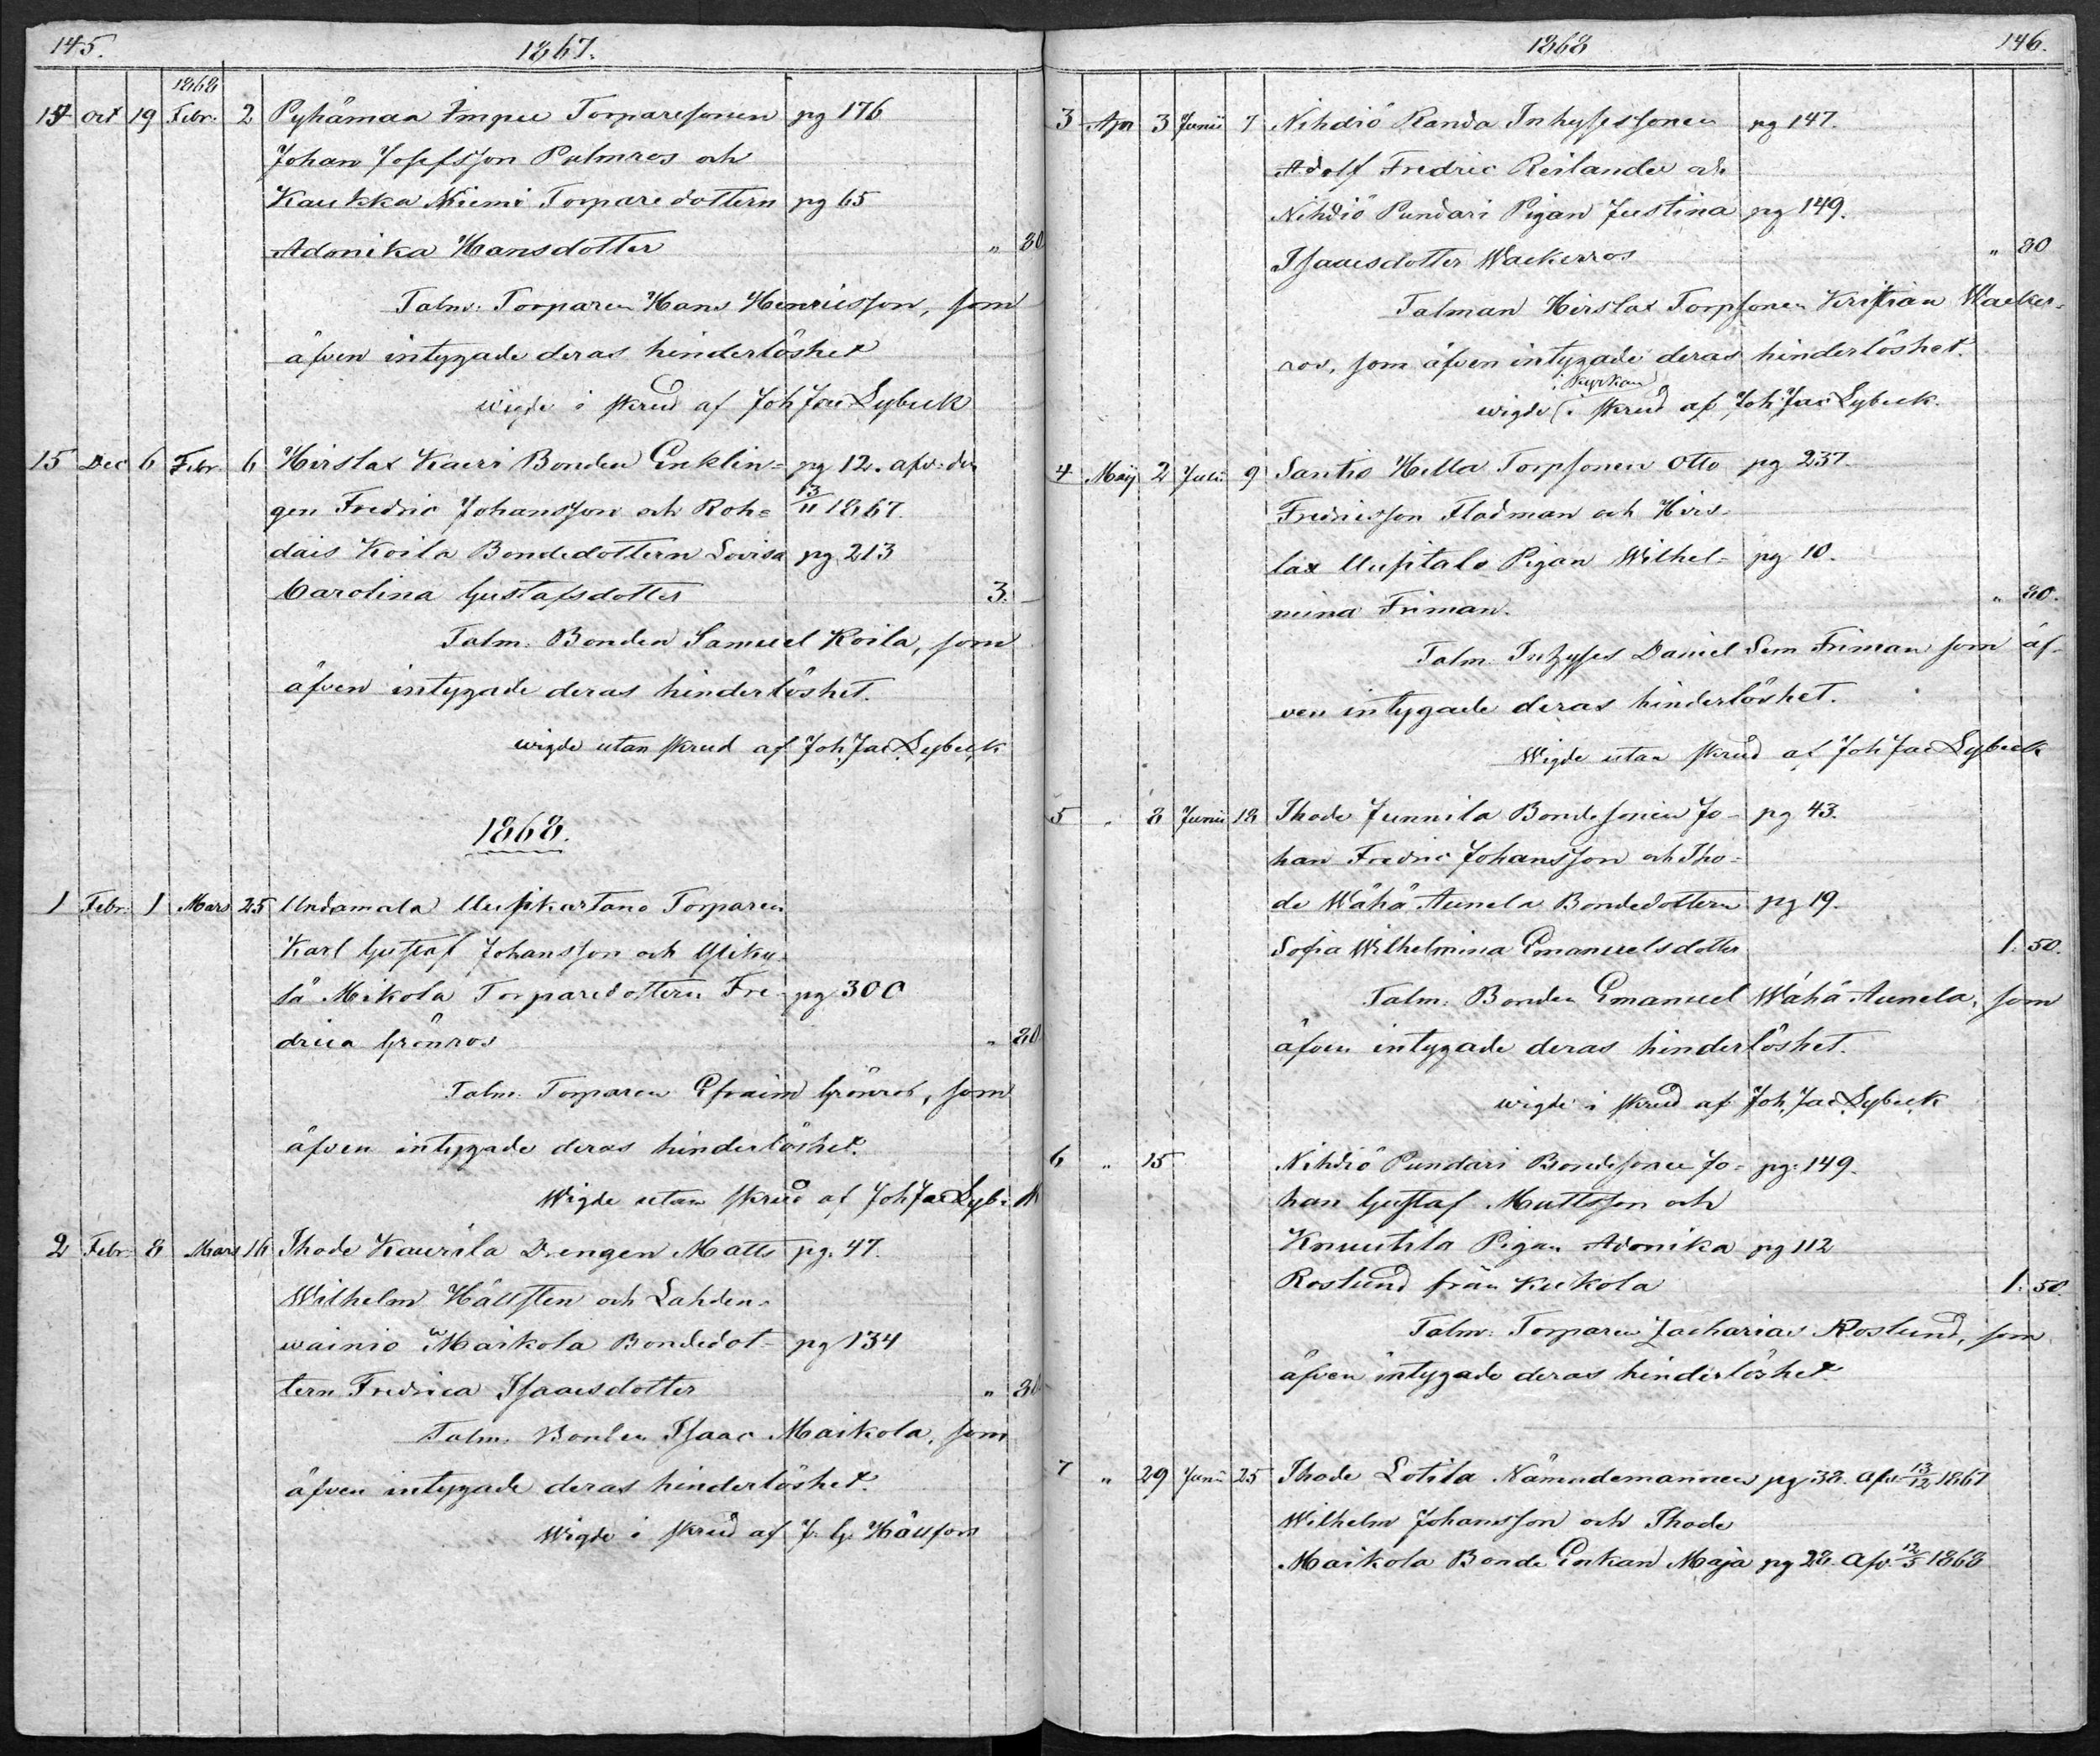 145.
1867.
1868
14 Oct 19 Febr. 2 Pyhämaa Impu Torparesonen pg 176
Johan Josefsson Palmros och
Kaukka Niemi Torparedottern pg 65
Adamika Hansdotter " 80
Talm: Torparen Hans Henricsson, som
äfven intygade deras hinderlöshet
wigde i skrud af Joh Jac Lybeck
15 Dec 6 Febr. 6 Hirslax Kauri Bonden Enklin= pg 12. afw: den
gen Fredric Johansson och Roh= 13/11 1867
dais Koila Bondedottern Lovisa pg 213
Carolina Gustafsdotter 3. –
Talm. Bonden Samuel Koila, som
äfven intygade deras hinderlöshet.
wigde utan skrud af Joh. Jac Lybeck
1868.
1 Febr. 1 Mars 25 Undamala Uusikartano Torparen
Karl Gustaf Johansson och Yliky-
lä Mikola Torparedottern Fre- pg 300
drica Grönros " 80
Talm. Torparen Efraim Grönros, som
äfven intygade deras hinderlöshet.
Wigde utan skrud af Joh Jac Lybeck
2 Febr. 8 Mars 16 Thode Kaurila Drengen Matts pg. 47.
Wilhelm Hällsten och Lahden-
wainio Maikola Bondedot- pg 134
tern Fredrica Isaacsdotter " 30
Talm. Bonden Isaac Maikola, som
äfven intygade deras hinderlöshet.
Wigde i skrud af J. G. Hällfors
1868
146.
3 Apr 3 Junii 7 Nihdiö Randa Inhysessonen pg 147.
Adolf Fredric Reilander och
Nihdiö Pundari Pigan Justina pg 149.
Isaacsdotter Wackerros " 80
Talman Hirslax Torpsonen Kristian Wacker-
ros, som äfven intygade deras hinderlöshet.
i kyrkan
wigde i skrud af Joh. Jac Lybeck.
4 Maij 2 Julii 9 Santio Hella Torpsonen Otto pg 237.
Fredricsson Flodman och Hirs-
lax Uusitalo Pigan Wilhel- pg 10.
mina Friman. " 80.
Talm. Inhyses Daniel Sem Friman som äf-
ven intygade deras hinderlöshet.
Wigde utan skrud af Joh Jac Lybeck
5 " 8 Junii 18 Thode Junnila Bondesonen Jo- pg 43.
han Fredric Johansson och Tho-
de Wähä Aunela Bondedottern pg 19.
Sofia Wilhelmina Emanuelsdotter 1. 50.
Talm. Bonden Emanuel Wähä Aunela, som
äfven intygade deras hinderlöshet.
wigde i skrud af Joh. Jac Lybeck
6 " 15 Nihdiö Pundari Bondesonen Jo- pg: 149.
han Gustaf Mattsson och
Knuutila Pigan Adamika pg 112
Roslund från Kukola 1. 50.
Talm. Torparen Zacharias Roslund, som
äfven intygade deras hinderlöshet
7 " 29 Junii 25 Thode Lotila Nämndemannen pg 38. Afw 13/12 1867
Wilhelm Johansson och Thode
Maikola Bonde Enkan Maja pg 28. Afw. 12/5 1868